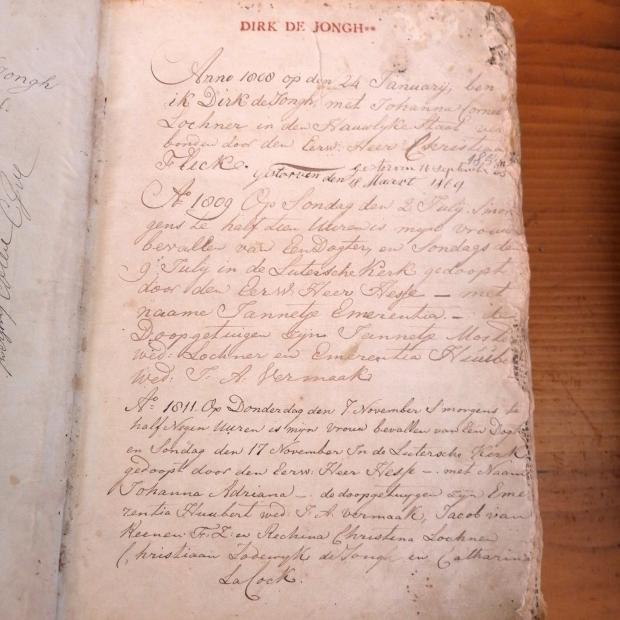 DIRK DE JONGH
Anno 1808 op den 24 January, ben
ik Dirk de Jongh, met Johanna
Lochner in den Hauwlyke Staat ver
bonden door den Eerw: Heer Christiaan
Fleck.
gestorven 11 September
gestorven den 8 Maart 1869
Ao 1809 Op Sondag den 2 July Smor
gens te half tien Uuren is myn vrouw
bevallen van Een Dogter, en Sondags de
9 July in de Lutersche Kerk gedoopt
door den Eerw: Heer Hesse – met
naame Jannetje Emerentia. – de
Doopgetuigen zyn Jannetje Moste
wed: Lochner en Emerentia Huube
Wed: J: A: Vermaak
Ao 1811. Op Donderdag den 7 November S morgens te
half Negen Uuren is myn vrouw bevallen van Een Dogt
en Sondag den 17 November In de Lutersche Kerk
gedoopt door den Eerw: Heer Hesse – met Naam
Johanna Adriana – de doopgetuygen zyn Eme
rentia Huubert wed: J: A: Vermaak, Jacob van
Reenen en Rechina Christina Lochner
Christiaan Lodewyk de Jongh en Catharina
La Cock.
Jongh